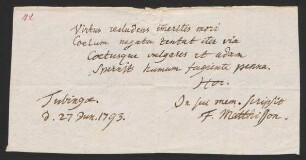 12
Virtus recludens immeritis mori
Coelum negatâ tentat iter via
Coetusque vulgares et udam
Spernit humum fugiente penna.
Hor.
Tubingae
d. 27 Jun. 1793.
In sui mem. scripsit
F. Matthisson.